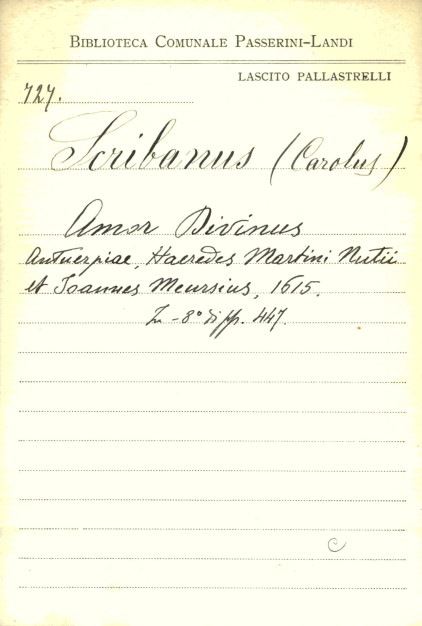 BIBLIOTECA COMUNALE PASSERINI-LANDI
LASCITO PALLASTRELLI
727.
Scribanus (Carolus)
Amor Divinus
Antuerpiae, Haeredes Martini Nutii
et Ioannes Meursius, 1615.
In-8° di pp. 447.
C